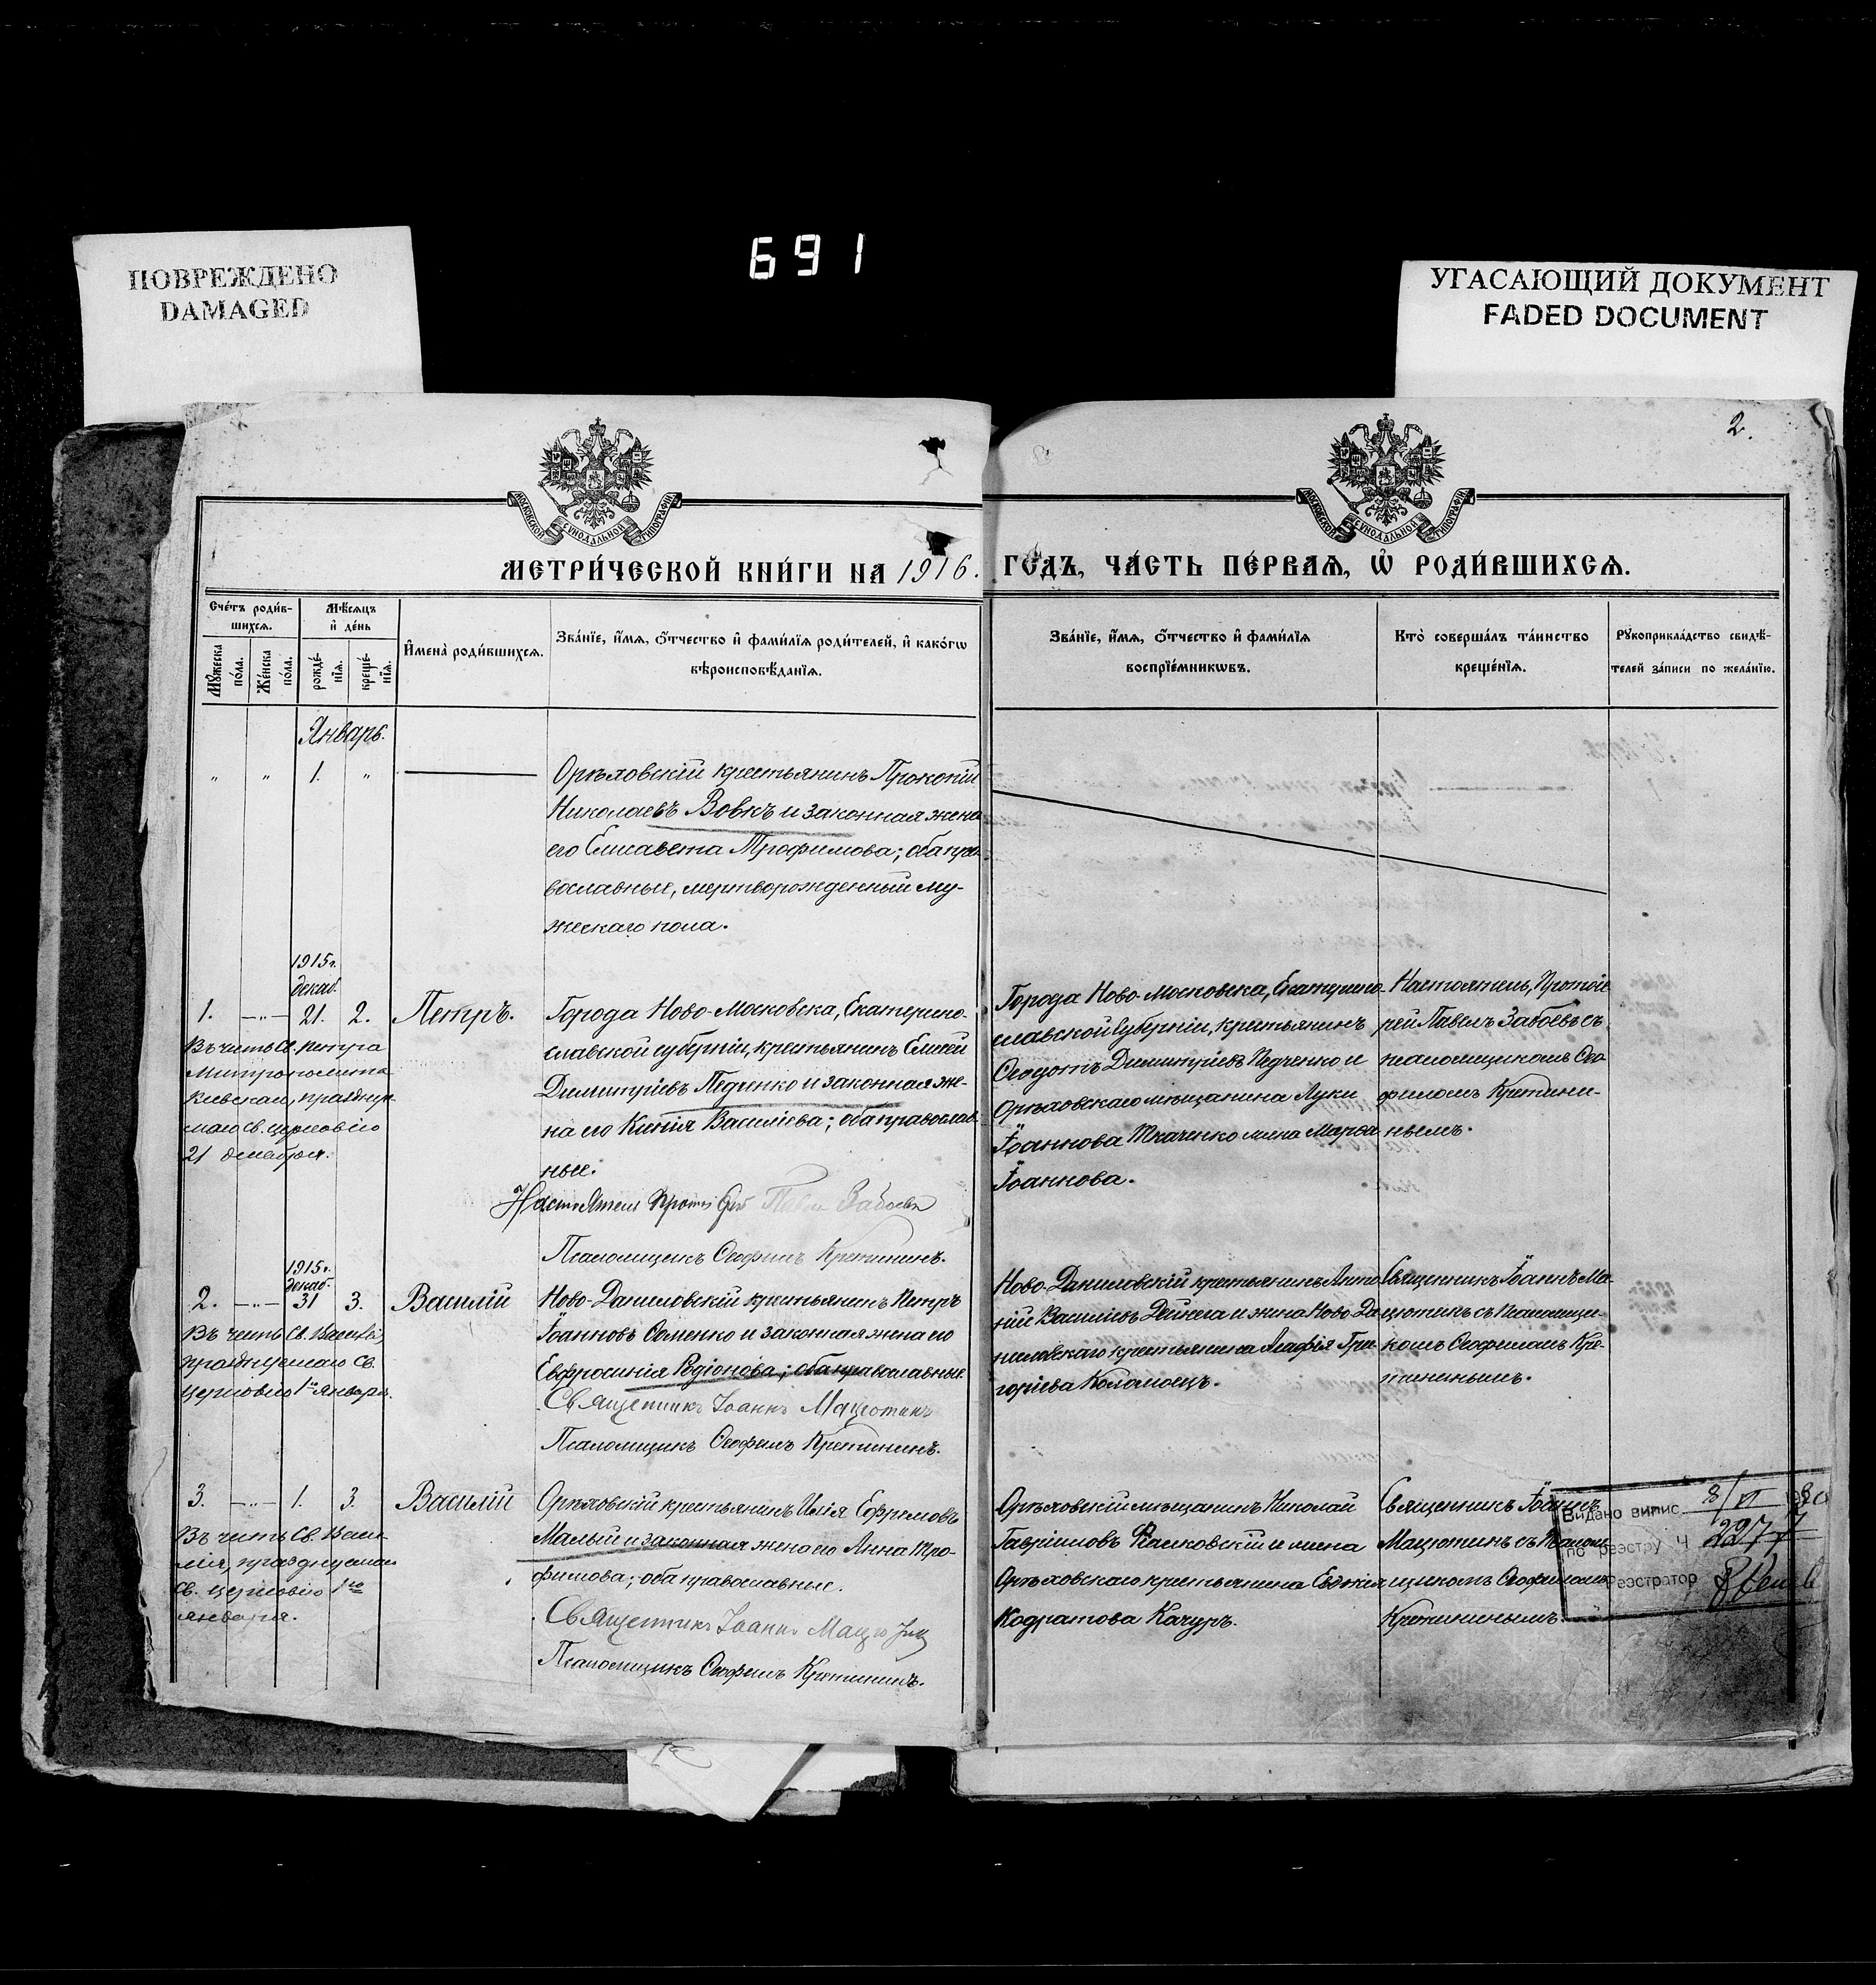 ПОВРЕЖДЕНО
DAMAGED
691
УГАСАЮЩИЙ ДОКУМЕНТ
FADED DOCUMENT
2.
МОСКОВСКОЙ СѴНОДАЛЬНОЙ ТИПОГРАФІИ
МОСКОВСКОЙ СѴНОДАЛЬНОЙ ТИПОГРАФІИ
МЕТРИ́ЧЕСКОЙ КНИ́ГИ НА 1916. ГОДЪ, ЧА́СТЬ ПЕ́РВАѦ, Ѡ҆ РОДИ́ВШИХСѦ.
Сче́тъ роди́в-
шихсѧ.
Мꙋ́жеска по́ла.
Же́нска по́ла.
Мѣ́сѧцъ
и҆ де́нь
рожде́-
нїѧ.
креще́-
нїѧ.
И҆мена̀ роди́вшихсѧ.
Зва́нїе, и҆́мѧ, ѻ҆́тчество и҆ фами́лїѧ роди́телей, и҆ како́гѡ
вѣроисповѣ́данїѧ.
Зва́нїе, и҆́мѧ, ѻ҆́тчество и҆ фами́лїѧ
воспрїе́мникѡвъ.
Кто̀ соверша́лъ та́инство
креще́нїѧ.
Рꙋкоприкла́дство свидѣ́-
телей за́писи по жела́нїю.
Январь.
" " 1. "
Орѣховскій крестьянинъ Прокопій
Николаевъ Вовкъ и законная жена
его Елисавета Трофимова; оба пра-
вославные, мертворожденный му-
жескаго пола.
1915г.
декаб.
1. —"— 21. 2. Петръ.
Въ честь Св. Петра
Митрополита
Кіевскаго, праздну-
маго Св. церковію
21 декабря.
Города Ново-Московска, Екатерино-
славской губерніи, крестьянинъ Елисей
Димитріевъ Педченко и законная же-
на его Ксенія Василіева; оба православ-
ные.
Настоятель Протоіерей Павелъ Забоевъ
Псаломщикъ Ѳеофилъ Кретининъ.
Города Ново-Московска, Екатерино-
славской губерніи, крестьянинъ
Ѳеодотъ Димитріевъ Педченко и
Орѣховскаго мѣщанина Луки
Іоаннова Ткаченко жена Марѳа
Іоаннова.
Настоятель, Протоіе-
рей Павелъ Забоевъ съ
псаломщикомъ Ѳео-
филомъ Кретини-
нымъ.
1915г.
декаб.
2. —"— 31 3. Василій
Въ честь Св. Василія,
празднуемаго Св.
церковію 1го Января.
Ново-Даниловскій крестьянинъ Петръ
Іоанновъ Соменко и законная жена его
Евфросинія Родіонова; оба православные.
Священникъ Іоаннъ Мацютинъ
Псаломщикъ Ѳеофилъ Кретининъ.
Ново-Даниловскій крестьянинъ Анто-
ній Василіевъ Дейнега и жена Ново-Да-
ниловскаго крестьянина Агафія Гри-
горіева Коломоецъ.
Священникъ Іоаннъ Ма-
цютинъ съ Псаломщи-
комъ Ѳеофиломъ Кре-
тининымъ.
3. —"— 1. 3. Василій
Въ честь Св. Васи-
лія, празднуемаго
Св. церковію 1го
января.
Орѣховскій крестьянинъ Илія Ефремовъ
Малый и законная жена его Анна Тро-
фимова; оба православные.
Священникъ Іоаннъ Мацютинъ
Псаломщикъ Ѳеофилъ Кретининъ.
Орѣховскій мѣщанинъ Николай
Гавріиловъ Расковскій и жена
Орѣховскаго крестьянина Евдокія
Кодратова Качуръ.
Священникъ Іоаннъ
Мацютинъ съ Псалом-
щикомъ Ѳеофиломъ
Кретининымъ.
Видано випис 8/VI
по реєстру Ч 22177
Реєстратор